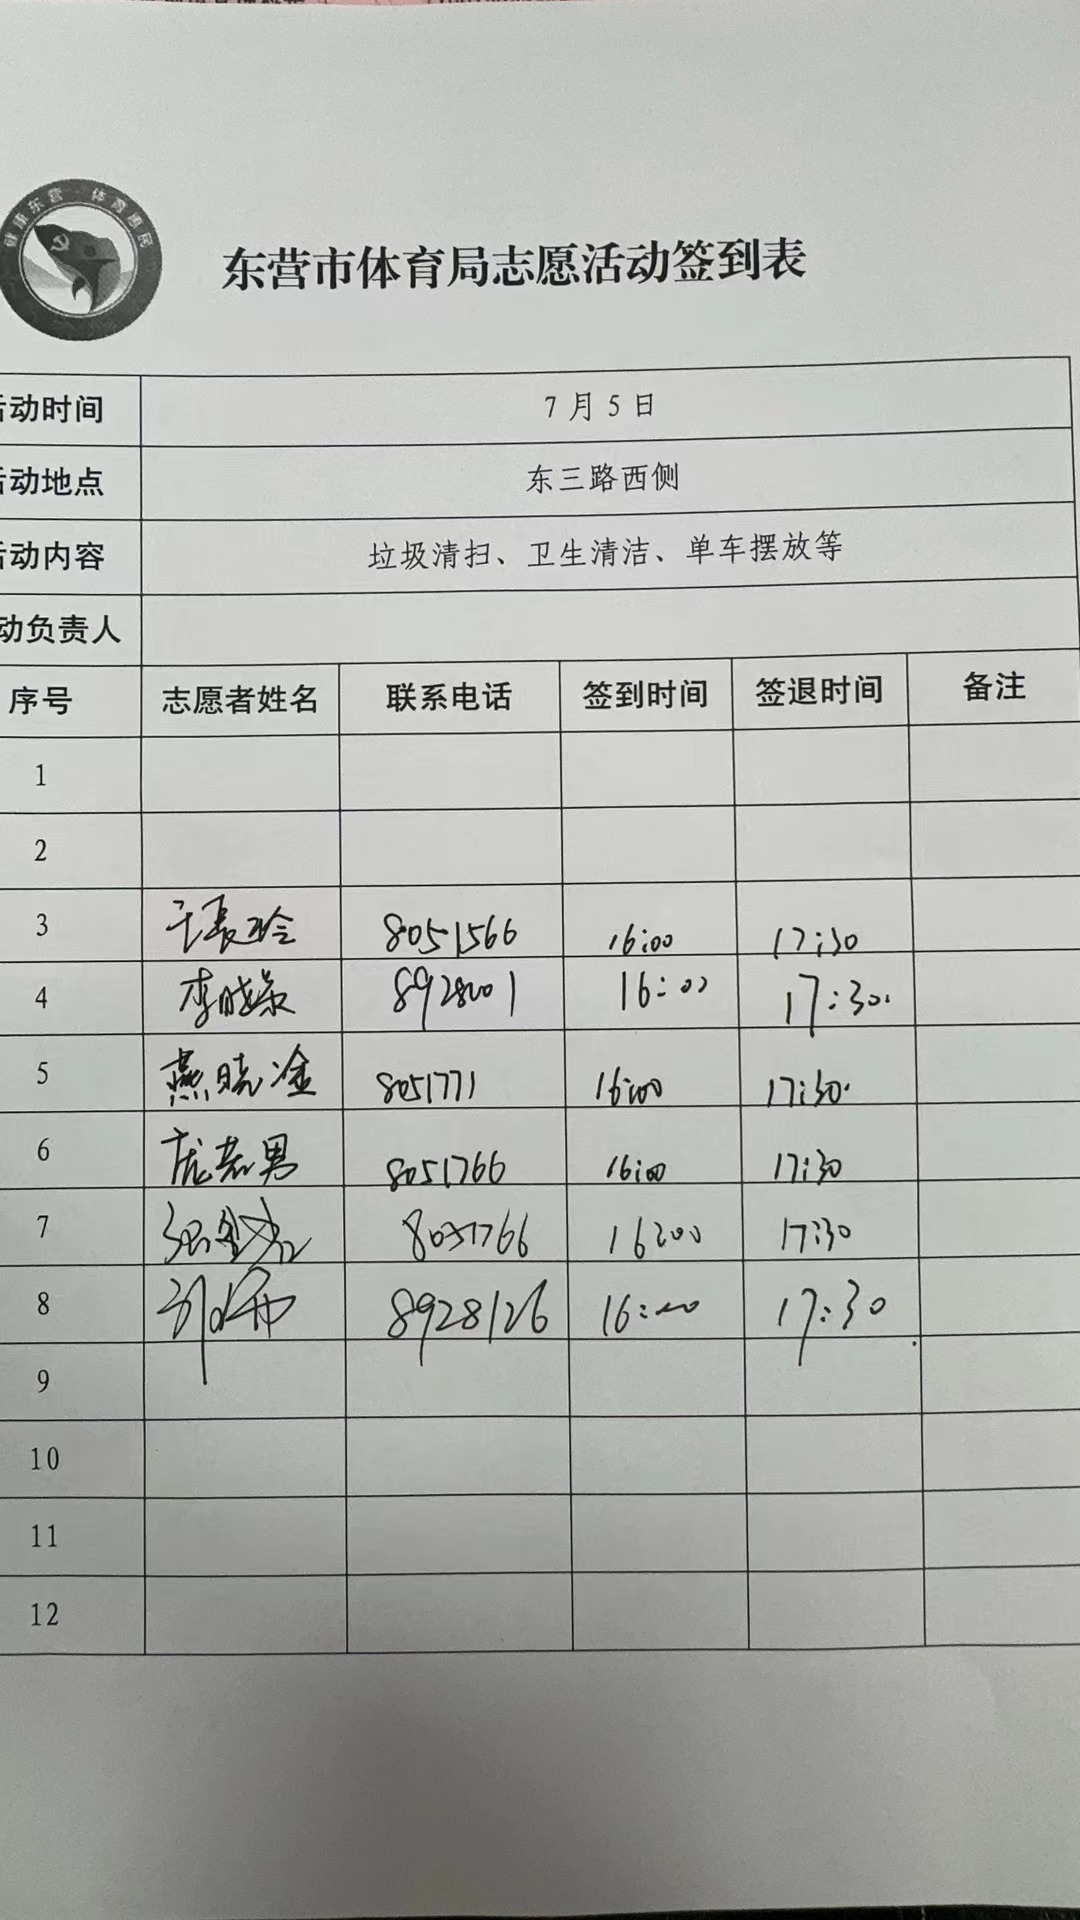 健康东营·体育惠民
东营市体育局志愿活动签到表
活动时间 7月5日
活动地点 东三路西侧
活动内容 垃圾清扫、卫生清洁、单车摆放等
动负责人
序号 志愿者姓名 联系电话 签到时间 签退时间 备注
1
2
3 8051566 16:00 17:30
4 8928001 16:00 17:30.
5 燕晓淦 8051771 16:00 17:30.
6 8051766 16:00 17:30
7 8051766 16:00 17:30
8 8928126 16:00 17:30
9
10
11
12